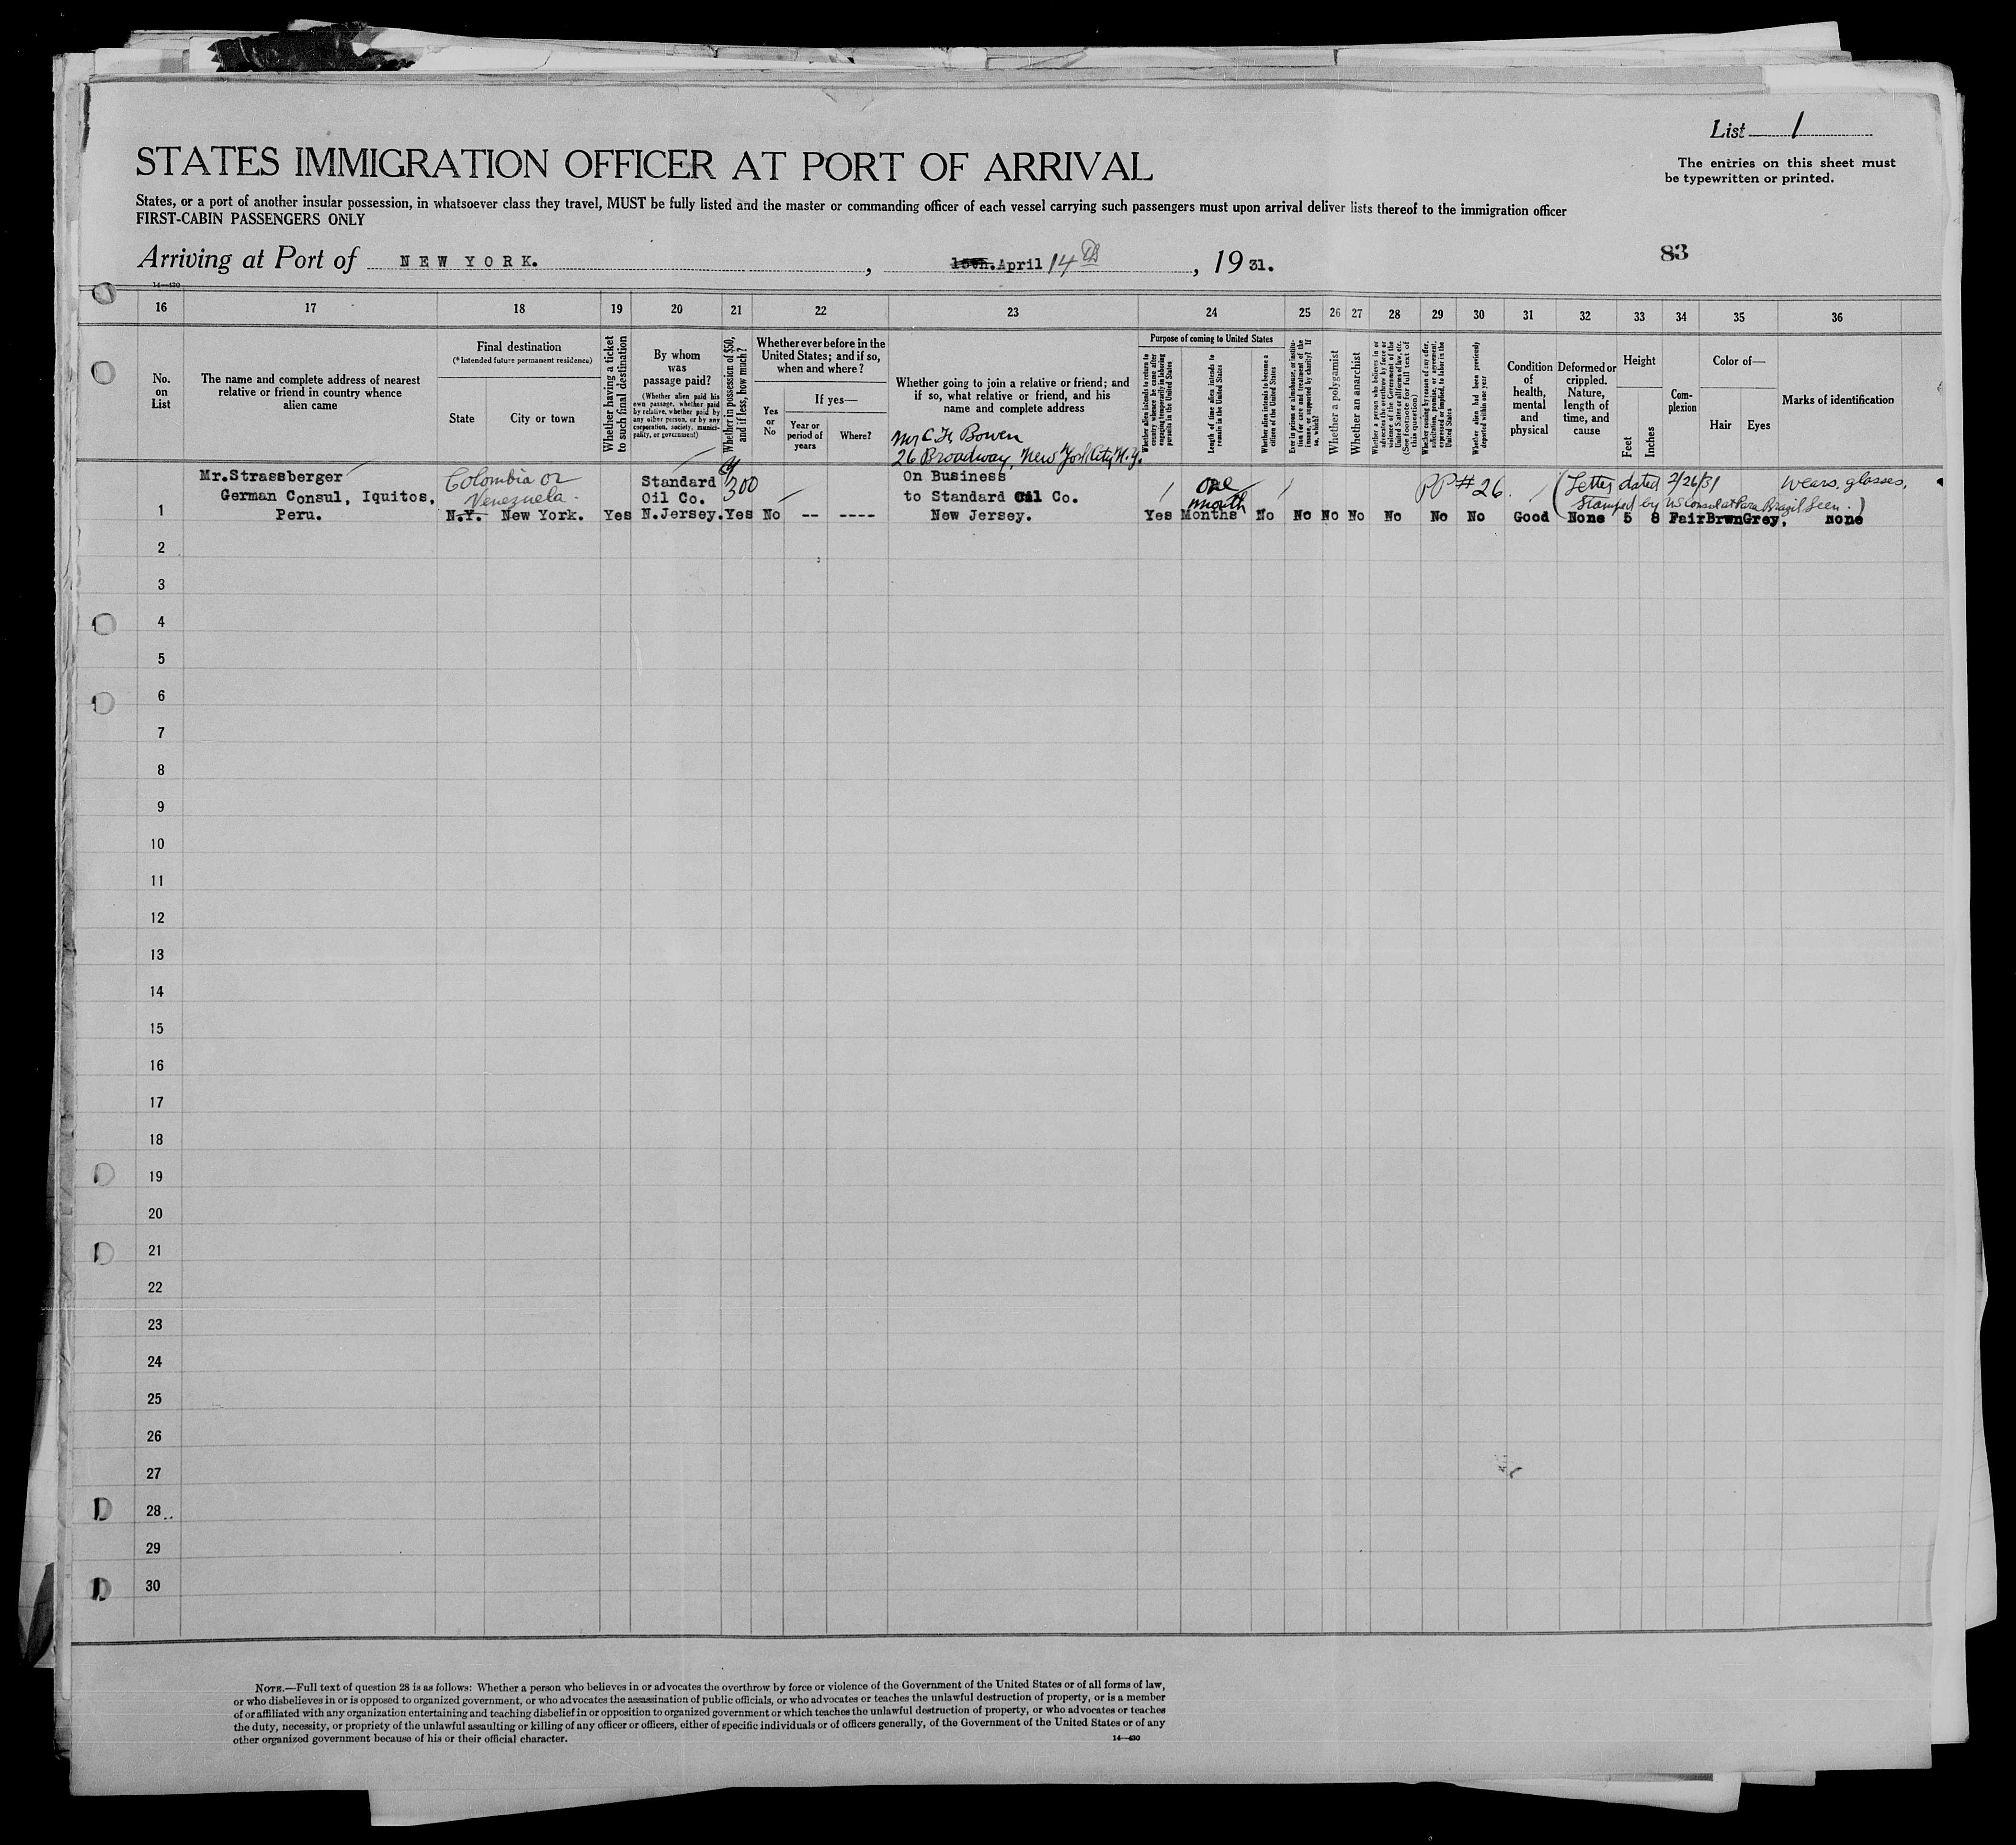 List 1
STATES IMMIGRATION OFFICER AT PORT OF ARRIVAL
The entries on this sheet must
be typewritten or printed.
States, or a port of another insular possession, in whatsoever class they travel, MUST be fully listed and the master or commanding officer of each vessel carrying such passengers must upon arrival deliver lists thereof to the immigration officer
FIRST-CABIN PASSENGERS ONLY
Arriving at Port of NEW YORK. , 15th. April 14th , 19 31.
83
14—430
16 17 18 19 20 21 22 23 24 25 26 27 28 29 30 31 32 33 34 35 36
No.
on
List
The name and complete address of nearest
relative or friend in country whence
alien came
Final destination
(*Intended future permanent residence)
State
City or town
Whether having a ticket
to such final destination
By whom
was
passage paid?
(Whether alien paid his
own passage, whether paid
by relative, whether paid by
any other person, or by any
corporation, society, munici-
pality, or government)
Whether in possession of $50,
and if less, how much?
Whether ever before in the
United States; and if so,
when and where?
Yes
or
No
If yes—
Year or
period of
years
Where?
Whether going to join a relative or friend; and
if so, what relative or friend, and his
name and complete address
Mr C F Bowen
26 Broadway, New York City N.Y.
Purpose of coming to United States
Whether alien intends to return to
country whence he came after
engaging temporarily in laboring
pursuits in the United States
Length of time alien intends to
remain in the United States
Whether alien intends to become a
citizen of the United States
Ever in prison or almshouse, or institu-
tion for care and treatment of the
insane, or supported by charity? If
so, which?
Whether a polygamist
Whether an anarchist
Whether a person who believes in or
advocates the overthrow by force or
violence of the Government of the
United States or all forms of law, etc.
(See footnote for full text of
this question)
Whether coming by reason of any offer,
solicitation, promise, or agreement,
expressed or implied, to labor in the
United States
Whether alien had been previously
deported within one year
Condition
of
health,
mental
and
physical
Deformed or
crippled.
Nature,
length of
time, and
cause
Height
Feet
Inches
Com-
plexion
Color of—
Hair
Eyes
Marks of identification
Mr.Strassberger
German Consul, Iquitos,
Peru.
Colombia or
Venezuela -
N.Y. New York. Yes
Standard
Oil Co.
N.Jersey.
300
Yes No -- ----
On Business
to Standard Oil Co.
New Jersey.
one
month
Yes Months No No No No No No No Good None 5 8 Fair Brwn Grey, none
PP#26. (Letter dated 2/26/31
Stamped by US Consul at Para Brazil Seen.)
wears glasses,
1
2
3
4
5
6
7
8
9
10
11
12
13
14
15
16
17
18
19
20
21
22
23
24
25
26
27
28
29
30
NOTE.—Full text of question 28 is as follows: Whether a person who believes in or advocates the overthrow by force or violence of the Government of the United States or of all forms of law,
or who disbelieves in or is opposed to organized government, or who advocates the assassination of public officials, or who advocates or teaches the unlawful destruction of property, or is a member
of or affiliated with any organization entertaining and teaching disbelief in or opposition to organized government or which teaches the unlawful destruction of property, or who advocates or teaches
the duty, necessity, or propriety of the unlawful assaulting or killing of any officer or officers, either of specific individuals or of officers generally, of the Government of the United States or of any
other organized government because of his or their official character.
14—430